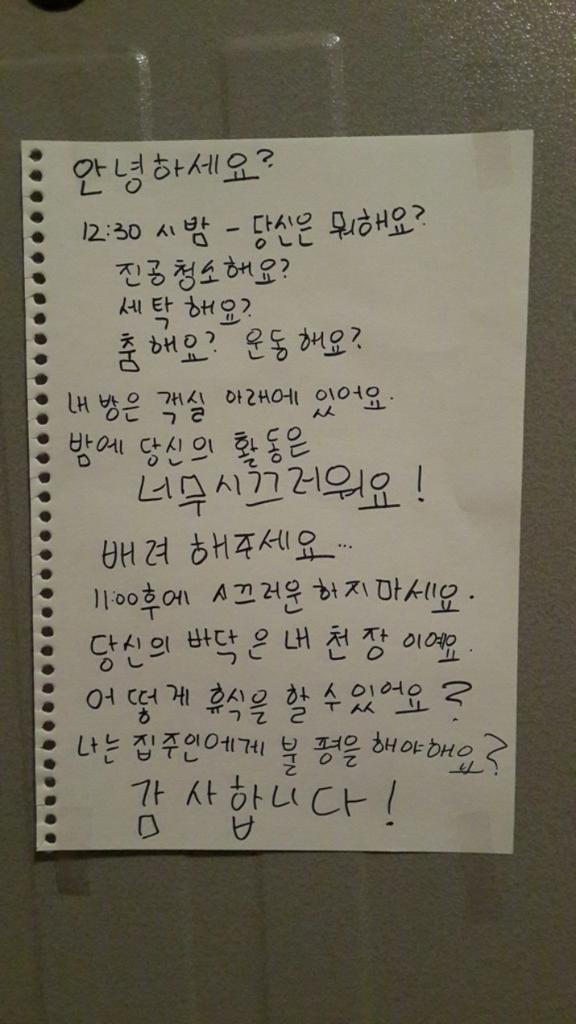 안녕하세요?
12:30 시 밤 - 당신은 뭐해요?
진공청소해요?
세탁 해요?
춤 해요? 운동 해요?
내 방은 객실 아래에 있어요.
밤에 당신의 활동은
너무시끄러워요!
배려 해주세요...
11:00후에 시끄러운 하지마세요.
당신의 바닥은 내 천장 이예요.
어떻게 휴식을 할 수 있어요?
나는 집주인에게 불평을 해야해요?
감사합니다!